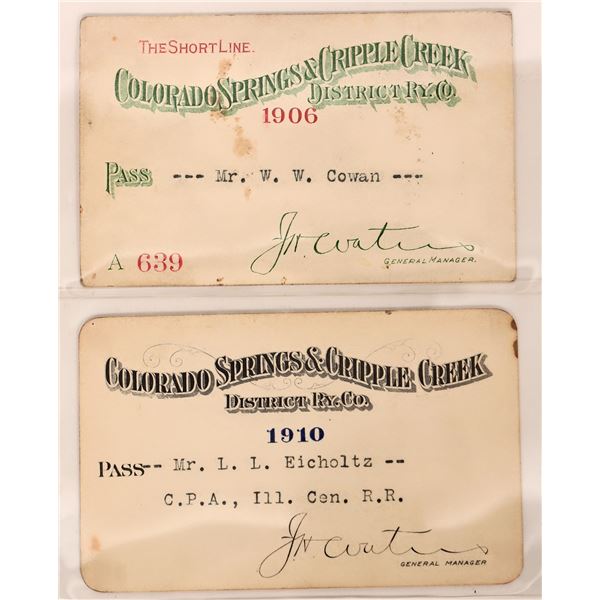 THE SHORT LINE.
COLORADO SPRINGS & CRIPPLE CREEK
DISTRICT RY. CO.
1906
PASS --- Mr. W. W. Cowan ---
A 639
GENERAL MANAGER.
COLORADO SPRINGS & CRIPPLE CREEK
DISTRICT RY. CO.
1910
PASS-- Mr. L. L. Eicholtz --
C.P.A., Ill. Cen. R.R.
GENERAL MANAGER